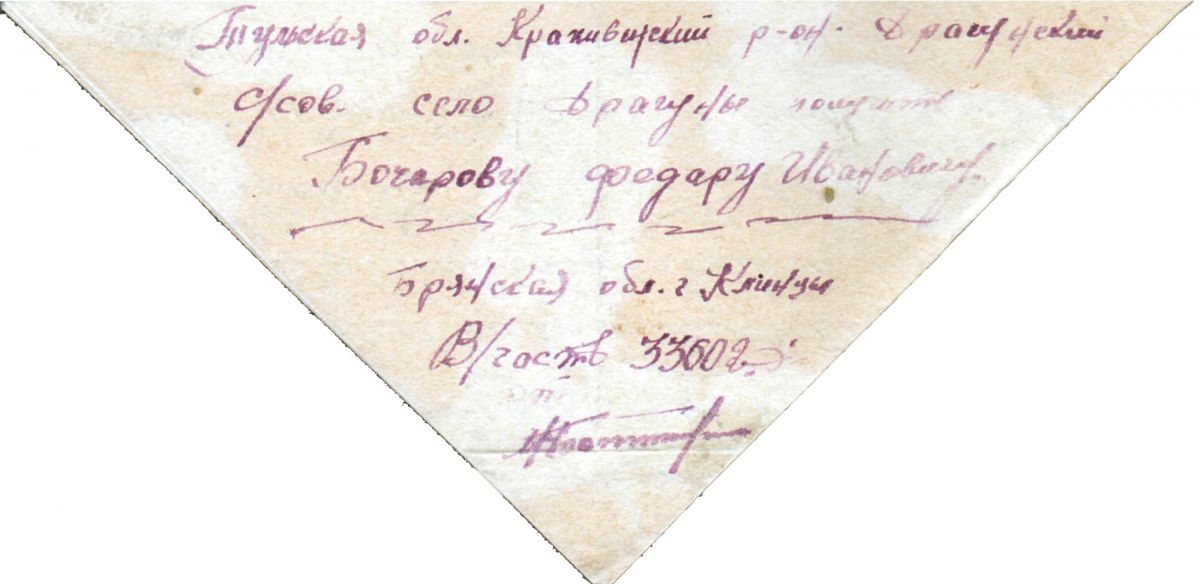 Тульская обл. Крапивинский р-он. Драгунский
с/сов. село Драгуны получить
Бочарову Федару Ивановичу.
Брянская обл. г Клинцы
В/часть 33602